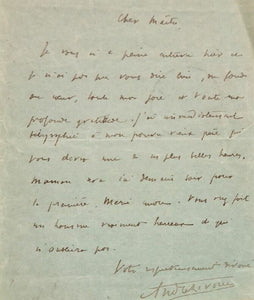 Cher Maître,
Je vous ai à peine entrevu hier et
je n'ai pas pu vous dire ici, du fond
du cœur, toute ma joie et toute ma
profonde gratitude. J'ai
télégraphié à mon pauvre vieux père qui
vous devra une de ses plus belles heures.
Maman sera ici demain soir pour
la première. Merci encore. Vous avez fait
un homme vraiment heureux et qui
n'oubliera pas.
Votre respectueusement dévoué